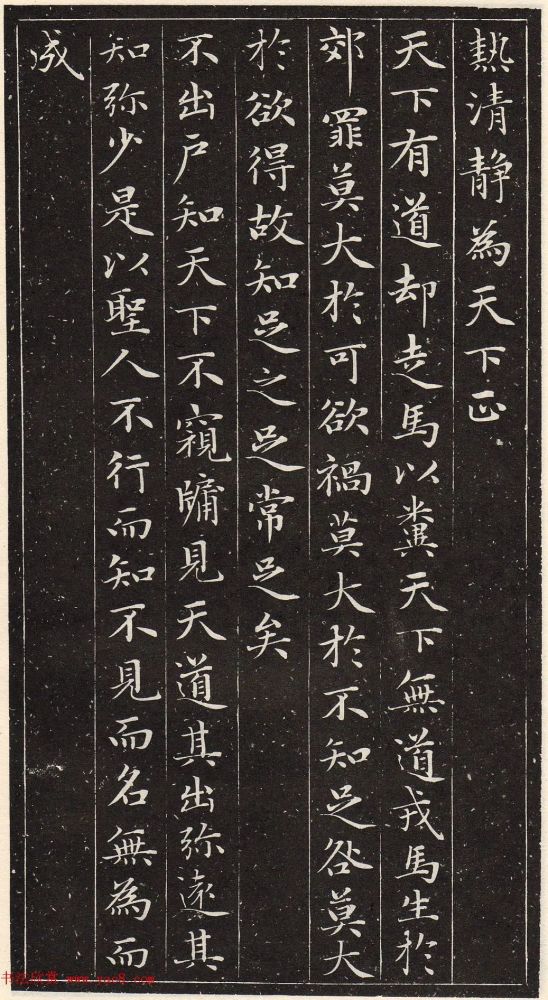 熱清静為天下正
天下有道却走馬以糞天下無道戎馬生於
郊罪莫大於可欲禍莫大於不知足咎莫大
於欲得故知足之足常足矣
不出戶知天下不窺牖見天道其出弥遠其
知弥少是以聖人不行而知不見而名無為而
成
书法欣赏 www.yac8.com